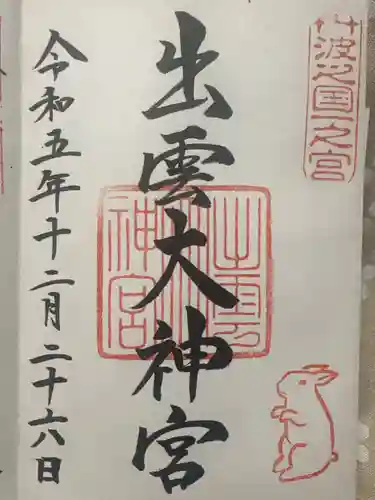 丹波之国一之宮
出雲大神宮
出雲神宮
令和五年十二月二十六日